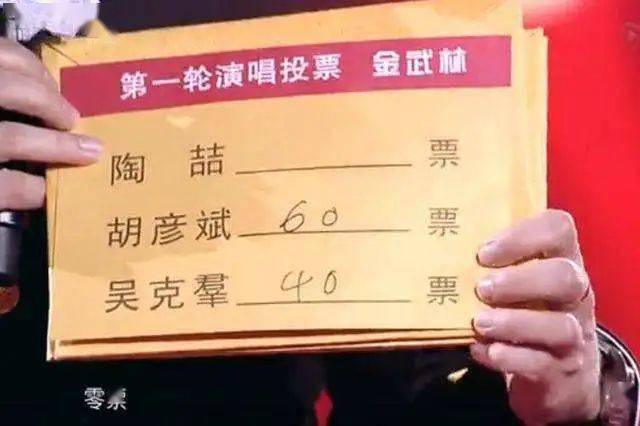 第一轮演唱投票 金武林
陶 喆 票
胡彦斌 60 票
吴克羣 40 票
零票